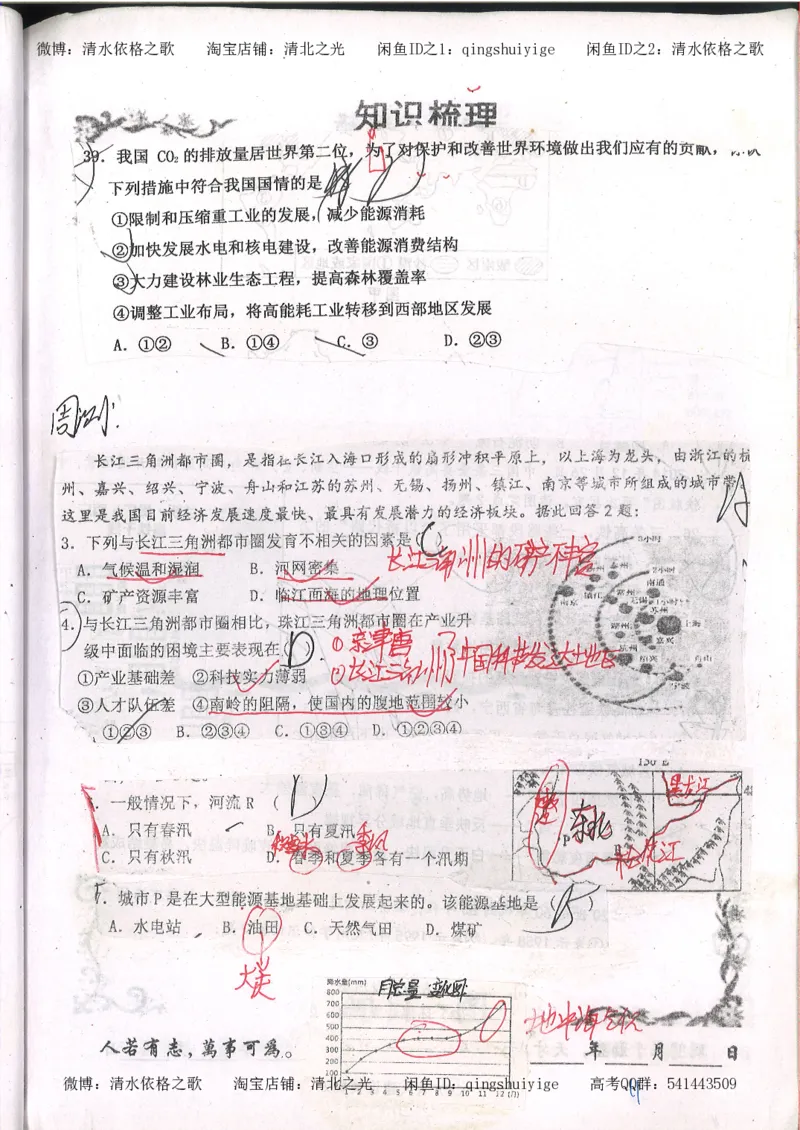 微博：清水依格之歌 淘宝店铺：清北之光 闲鱼ID之1：qingshuiyige 闲鱼ID之2：清水依格之歌
知识梳理
39．我国 CO₂ 的排放量居世界第二位，为了对保护和改善世界环境做出我们应有的贡献，
下列措施中符合我国国情的是
①限制和压缩重工业的发展，减少能源消耗
②加快发展水电和核电建设，改善能源消费结构
③大力建设林业生态工程，提高森林覆盖率
④调整工业布局，将高能耗工业转移到西部地区发展
A．①② B．①④ C．③ D．②③
长江三角洲都市圈，是指在长江入海口形成的扇形冲积平原上，以上海为龙头，由浙江的杭
州、嘉兴、绍兴、宁波、舟山和江苏的苏州、无锡、扬州、镇江、南京等城市所组成的城市带
这里是我国目前经济发展速度最快、最具有发展潜力的经济板块。据此回答2题：
3．下列与长江三角洲都市圈发育不相关的因素是(C)
A．气候温和湿润 B．河网密集
C．矿产资源丰富 D．临江面海的地理位置
长江三角洲的矿产不丰富
4．与长江三角洲都市圈相比，珠江三角洲都市圈在产业升
级中面临的困境主要表现在(D)
①京津唐
①产业基础差 ②科技实力薄弱
②长江三角洲 中国科技发达地区
③人才队伍差 ④南岭的阻隔，使国内的腹地范围较小
A．①②③ B．②③④ C．①③④ D．①②③④
3小时
2小时
1小时
泰州
南通
南京
镇江
常州
无锡
苏州
上海
湖州
嘉兴
杭州
绍兴
舟山
宁波
130°E
．一般情况下，河流R （D）
A．只有春汛 B．只有夏汛
C．只有秋汛 D．春季和夏季各有一个汛期
黑龙江
东北
P
R
松花江
．城市P是在大型能源基地基础上发展起来的。该能源基地是（B）
A．水电站 B．油田 C．天然气田 D．煤矿
大庆
降水量(mm)
800
700
600
500
400
300
200
100
1 2 3 4 5 6 7 8 9 10 11 12(月)
地中海气候
人若有志，萬事可為。
年 月 日
微博：清水依格之歌 淘宝店铺：清北之光 闲鱼ID：qingshuiyige 高考QQ群：541443509